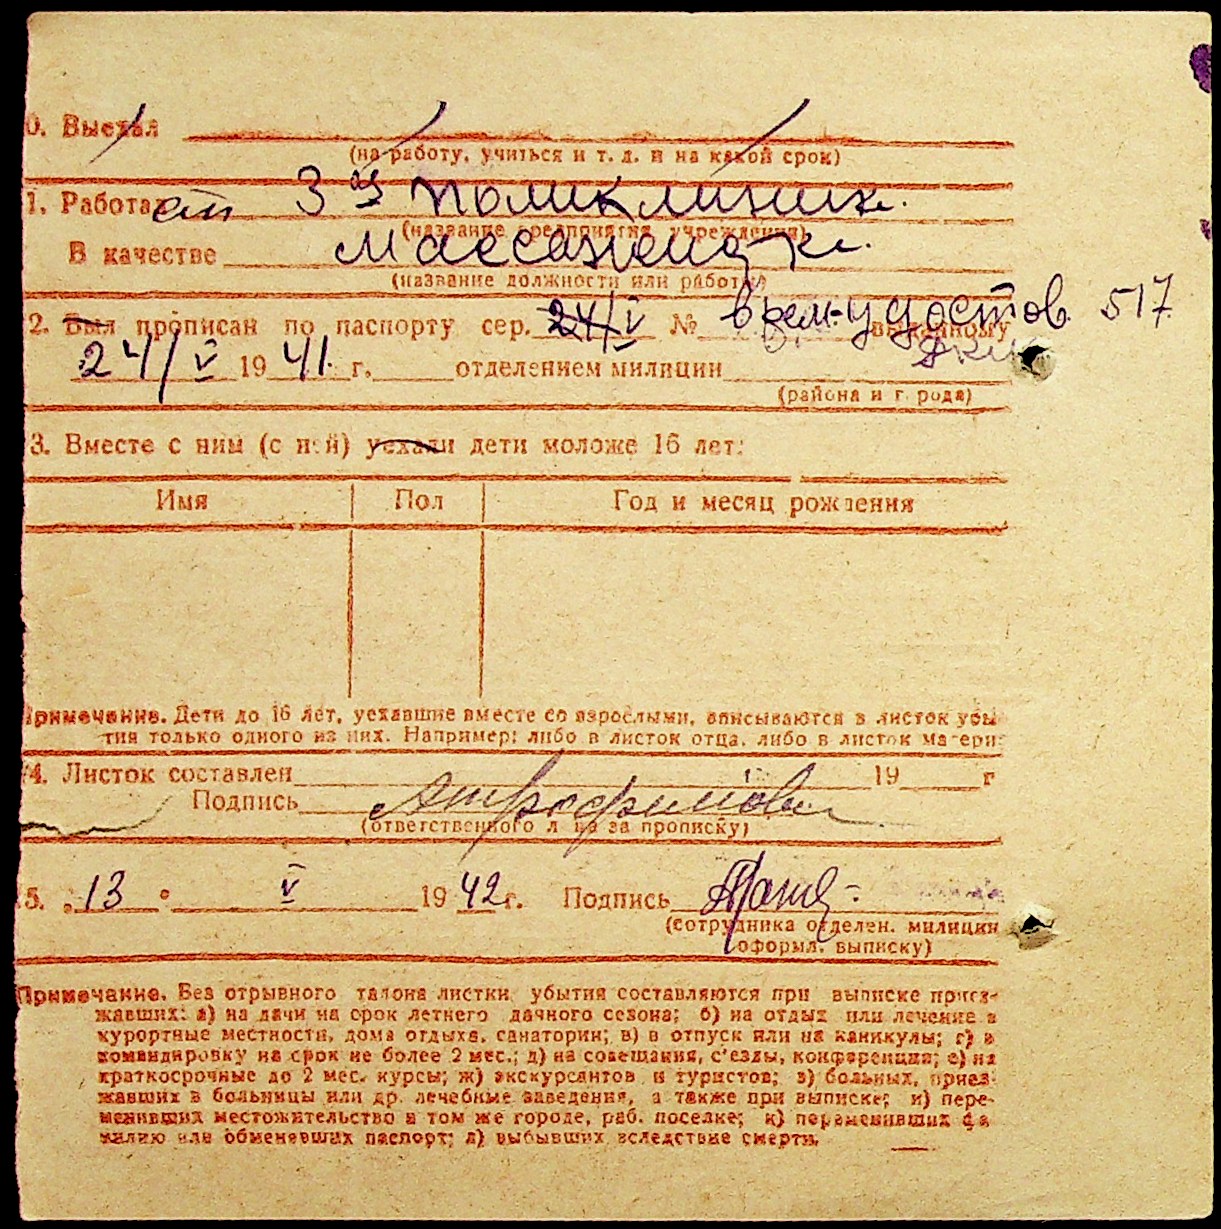 0. Выехал
(на работу, учиться и т. д. и на какой срок)
1. Работает 3ая поликлиник.
(название предприятия, учреждения)
В качестве Массажистк.
(название должности или работы)
2. Был прописан по паспорту сер. 24/V № врем. удостов. 517 выданному
24/V 1941. г. отделением милиции
(района и г рода)
3. Вместе с ним (с ней) уехали дети моложе 16 лет:
Имя Пол Год и месяц рождения
Примечание. Дети до 16 лет, уехавшие вместе со взрослыми, вписываются в листок убы
тия только одного из них. Например: либо в листок отца, либо в листок матери
4. Листок составлен 19 г
Подпись
(ответственного л ца за прописку)
5. "13" V 1942г. Подпись
(сотрудника отделен. милиции
оформл. выписку)
Примечание. Без отрывного талона листки убытия составляются при выписке приез-
жавших: а) на дачи на срок летнего дачного сезона; б) на отдых или лечение в
курортные местности, дома отдыха, санатории; в) в отпуск или на каникулы; г) в
командировку на срок не более 2 мес.; д) на совещания, с'езды, конференции; е) на
краткосрочные до 2 мес. курсы; ж) экскурсантов и туристов; з) больных, приез-
жавших в больницы или др. лечебные заведения, а также при выписке; и) пере-
менивших местожительство в том же городе, раб. поселке; к) переменивших фа
милию или обменявших паспорт; л) выбывших вследствие смерти.